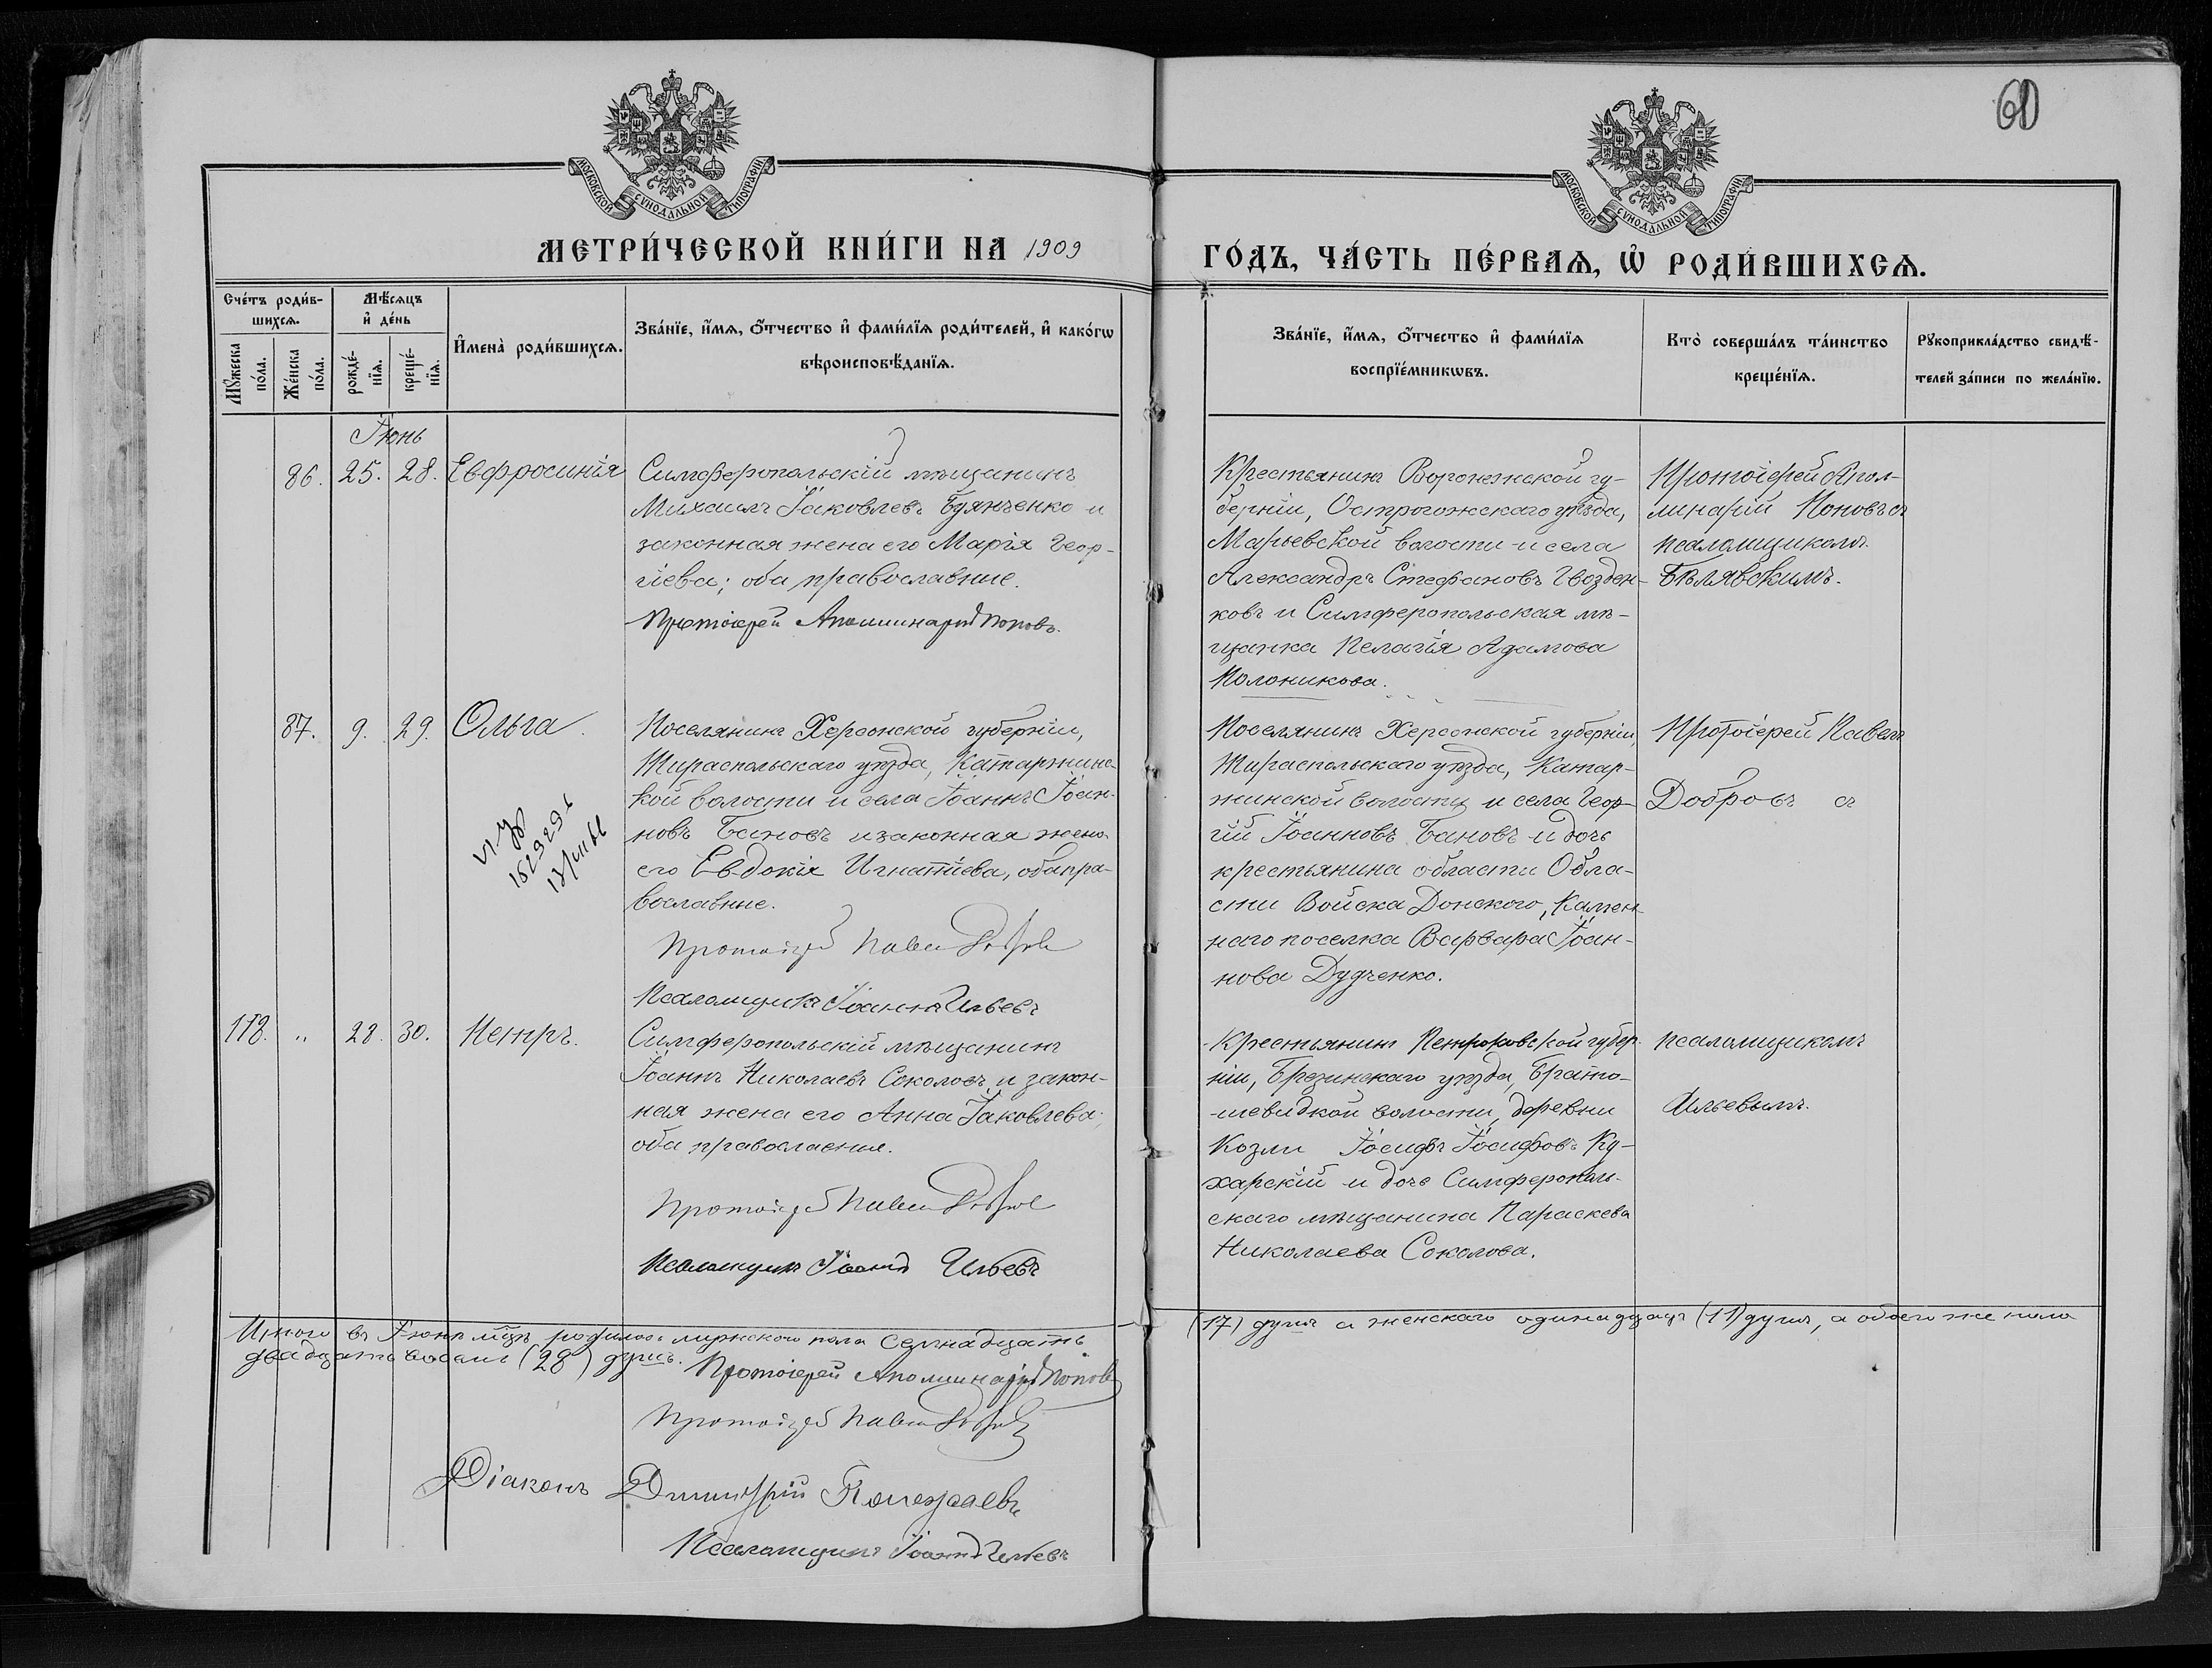 60
МОСКОВСКОЙ СѴНОДАЛЬНОЙ ТИПОГРАФІИ
МОСКОВСКОЙ СѴНОДАЛЬНОЙ ТИПОГРАФІИ
МЕТРИ́ЧЕСКОЙ КНИ́ГИ НА 1909
ГО́ДЪ, ЧА́СТЬ ПЕ́РВАѦ, Ѡ РОДИ́ВШИХСѦ.
Сче́тъ роди́в-
шихсѧ.
Мꙋ́жеска
по́ла.
Же́нска
по́ла.
Мѣ́сѧцъ
и҆ де́нь
рожде́-
нїѧ.
креще́-
нїѧ.
И҆мена̀ роди́вшихсѧ.
Зва́нїе, и҆́мѧ, ѻ҆́тчество и҆ фами́лїѧ роди́телей, и҆ како́гѡ
вѣроисповѣ́данїѧ.
Зва́нїе, и҆́мѧ, ѻ҆́тчество и҆ фами́лїѧ
воспрїе́мникѡвъ.
Кто̀ соверша́лъ та́инство
креще́нїѧ.
Рꙋкоприкла́дство свидѣ́-
телей за́писи по жела́нїю.
Іюнь
86. 25. 28. Евфросинія
Симферопольскій мѣщанинъ
Михаилъ Іаковлевъ Буянченко и
законная жена его Марія Геор-
гіева; оба православные.
Протоіерей Аполлинарій Поповъ.
Крестьянинъ Воронежской гу-
берніи, Острогожскаго уѣзда,
Марьевской волости и села
Александръ Стефановъ Гвозден-
ковъ и Симферопольская мѣ-
щанка Пелагія Адамова
Полоникова.
Протоіерей Апол-
линарій Поповъ съ
псаломщикомъ
Бѣлявскимъ.
87. 9. 29. Ольга
VI УФ
1529296
13/VII 66
Поселянинъ Херсонской губерніи,
Тираспольскаго уѣзда, Катаржинс-
кой волости и села Іоаннъ Іоан-
новъ Бановъ и законная жена
его Евдокія Игнатіева, оба пра-
вославные.
Протоіерей Павелъ Добровъ
Псаломщикъ Іоаннъ Ильевъ
Поселянинъ Херсонской губерніи,
Тираспольскаго уѣзда, Катар-
жинской волости и села Геор-
гій Іоанновъ Бановъ и дочь
крестьянина области Обла-
сти Войска Донского, Камен-
наго поселка Варвара Іоан-
нова Дудченко.
Протоіерей Павелъ
Добровъ съ
118. " 28. 30. Петръ.
Симферопольскій мѣщанинъ
Іоаннъ Николаевъ Соколовъ и закон-
ная жена его Анна Іаковлева;
оба православные.
Протоіерей Павелъ Добровъ
Псаломщикъ Іоаннъ Ильевъ
Крестьянинъ Петроковской губер-
ніи, Брезинскаго уѣзда, Брато-
шевидкой волости, деревни
Козли Іосифъ Іосифовъ Ку-
харскій и дочь Симферополь-
скаго мѣщанина Параскева
Николаева Соколова.
псаломщикомъ
Ильевымъ.
Итого въ Іюнѣ мцѣ родилось мужского пола семнадцать
(17) душъ а женскаго одинадцать (11) душъ, а обоего же пола
двадцать восемь (28) душъ.
Протоіерей Аполлинарій Поповъ
Протоіерей Павелъ Добровъ
Діаконъ Димитрій
Псаломщикъ Іоаннъ Ильевъ